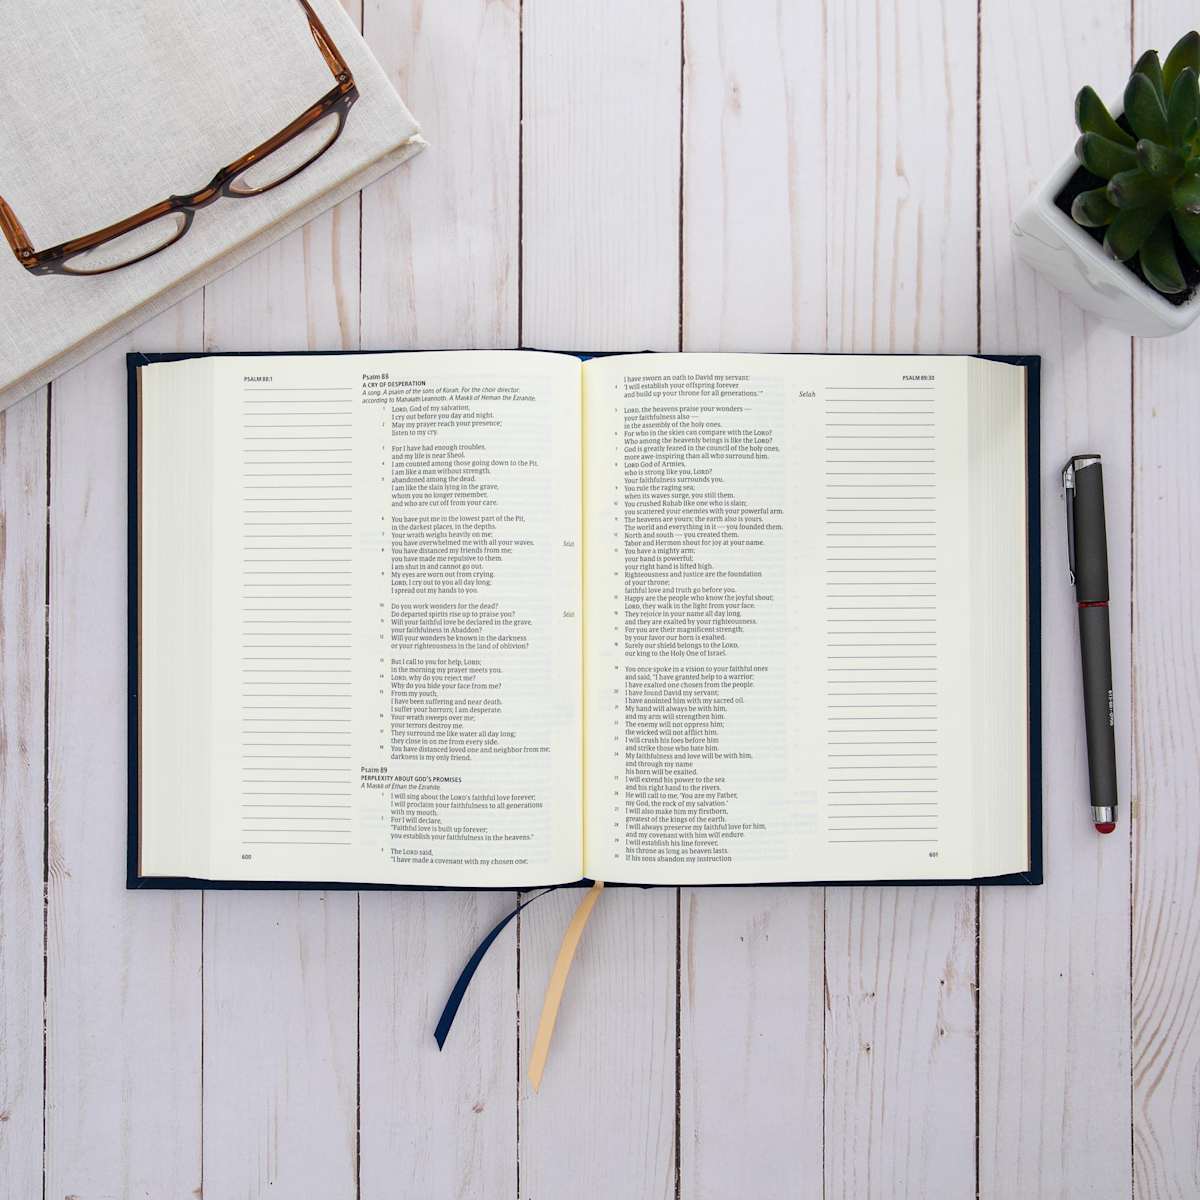 PSALM 88:1
Psalm 88
A CRY OF DESPERATION
A song. A psalm of the sons of Korah. For the choir director:
according to Mahalath Leannoth. A Maskil of Heman the Ezrahite.
1 LORD, God of my salvation,
I cry out before you day and night.
2 May my prayer reach your presence;
listen to my cry.
3 For I have had enough troubles,
and my life is near Sheol.
4 I am counted among those going down to the Pit.
I am like a man without strength,
5 abandoned among the dead.
I am like the slain lying in the grave,
whom you no longer remember,
and who are cut off from your care.
6 You have put me in the lowest part of the Pit,
in the darkest places, in the depths.
7 Your wrath weighs heavily on me;
you have overwhelmed me with all your waves. Selah
8 You have distanced my friends from me;
you have made me repulsive to them.
I am shut in and cannot go out.
9 My eyes are worn out from crying.
LORD, I cry out to you all day long;
I spread out my hands to you.
10 Do you work wonders for the dead?
Do departed spirits rise up to praise you? Selah
11 Will your faithful love be declared in the grave,
your faithfulness in Abaddon?
12 Will your wonders be known in the darkness
or your righteousness in the land of oblivion?
13 But I call to you for help, LORD;
in the morning my prayer meets you.
14 LORD, why do you reject me?
Why do you hide your face from me?
15 From my youth,
I have been suffering and near death.
I suffer your horrors; I am desperate.
16 Your wrath sweeps over me;
your terrors destroy me.
17 They surround me like water all day long;
they close in on me from every side.
18 You have distanced loved one and neighbor from me;
darkness is my only friend.
Psalm 89
PERPLEXITY ABOUT GOD'S PROMISES
A Maskil of Ethan the Ezrahite.
1 I will sing about the LORD's faithful love forever;
I will proclaim your faithfulness to all generations
with my mouth.
2 For I will declare,
"Faithful love is built up forever;
you establish your faithfulness in the heavens."
3 The LORD said,
"I have made a covenant with my chosen one;
600
PSALM 89:30
I have sworn an oath to David my servant:
4 'I will establish your offspring forever
and build up your throne for all generations.'" Selah
5 LORD, the heavens praise your wonders —
your faithfulness also —
in the assembly of the holy ones.
6 For who in the skies can compare with the LORD?
Who among the heavenly beings is like the LORD?
7 God is greatly feared in the council of the holy ones,
more awe-inspiring than all who surround him.
8 LORD God of Armies,
who is strong like you, LORD?
Your faithfulness surrounds you.
9 You rule the raging sea;
when its waves surge, you still them.
10 You crushed Rahab like one who is slain;
you scattered your enemies with your powerful arm.
11 The heavens are yours; the earth also is yours.
The world and everything in it — you founded them.
12 North and south — you created them.
Tabor and Hermon shout for joy at your name.
13 You have a mighty arm;
your hand is powerful;
your right hand is lifted high.
14 Righteousness and justice are the foundation
of your throne;
faithful love and truth go before you.
15 Happy are the people who know the joyful shout;
LORD, they walk in the light from your face.
16 They rejoice in your name all day long,
and they are exalted by your righteousness.
17 For you are their magnificent strength;
by your favor our horn is exalted.
18 Surely our shield belongs to the LORD,
our king to the Holy One of Israel.
19 You once spoke in a vision to your faithful ones
and said, "I have granted help to a warrior;
I have exalted one chosen from the people.
20 I have found David my servant;
I have anointed him with my sacred oil.
21 My hand will always be with him,
and my arm will strengthen him.
22 The enemy will not oppress him;
the wicked will not afflict him.
23 I will crush his foes before him
and strike those who hate him.
24 My faithfulness and love will be with him,
and through my name
his horn will be exalted.
25 I will extend his power to the sea
and his right hand to the rivers.
26 He will call to me, 'You are my Father,
my God, the rock of my salvation.'
27 I will also make him my firstborn,
greatest of the kings of the earth.
28 I will always preserve my faithful love for him,
and my covenant with him will endure.
29 I will establish his line forever,
his throne as long as heaven lasts.
30 If his sons abandon my instruction
601